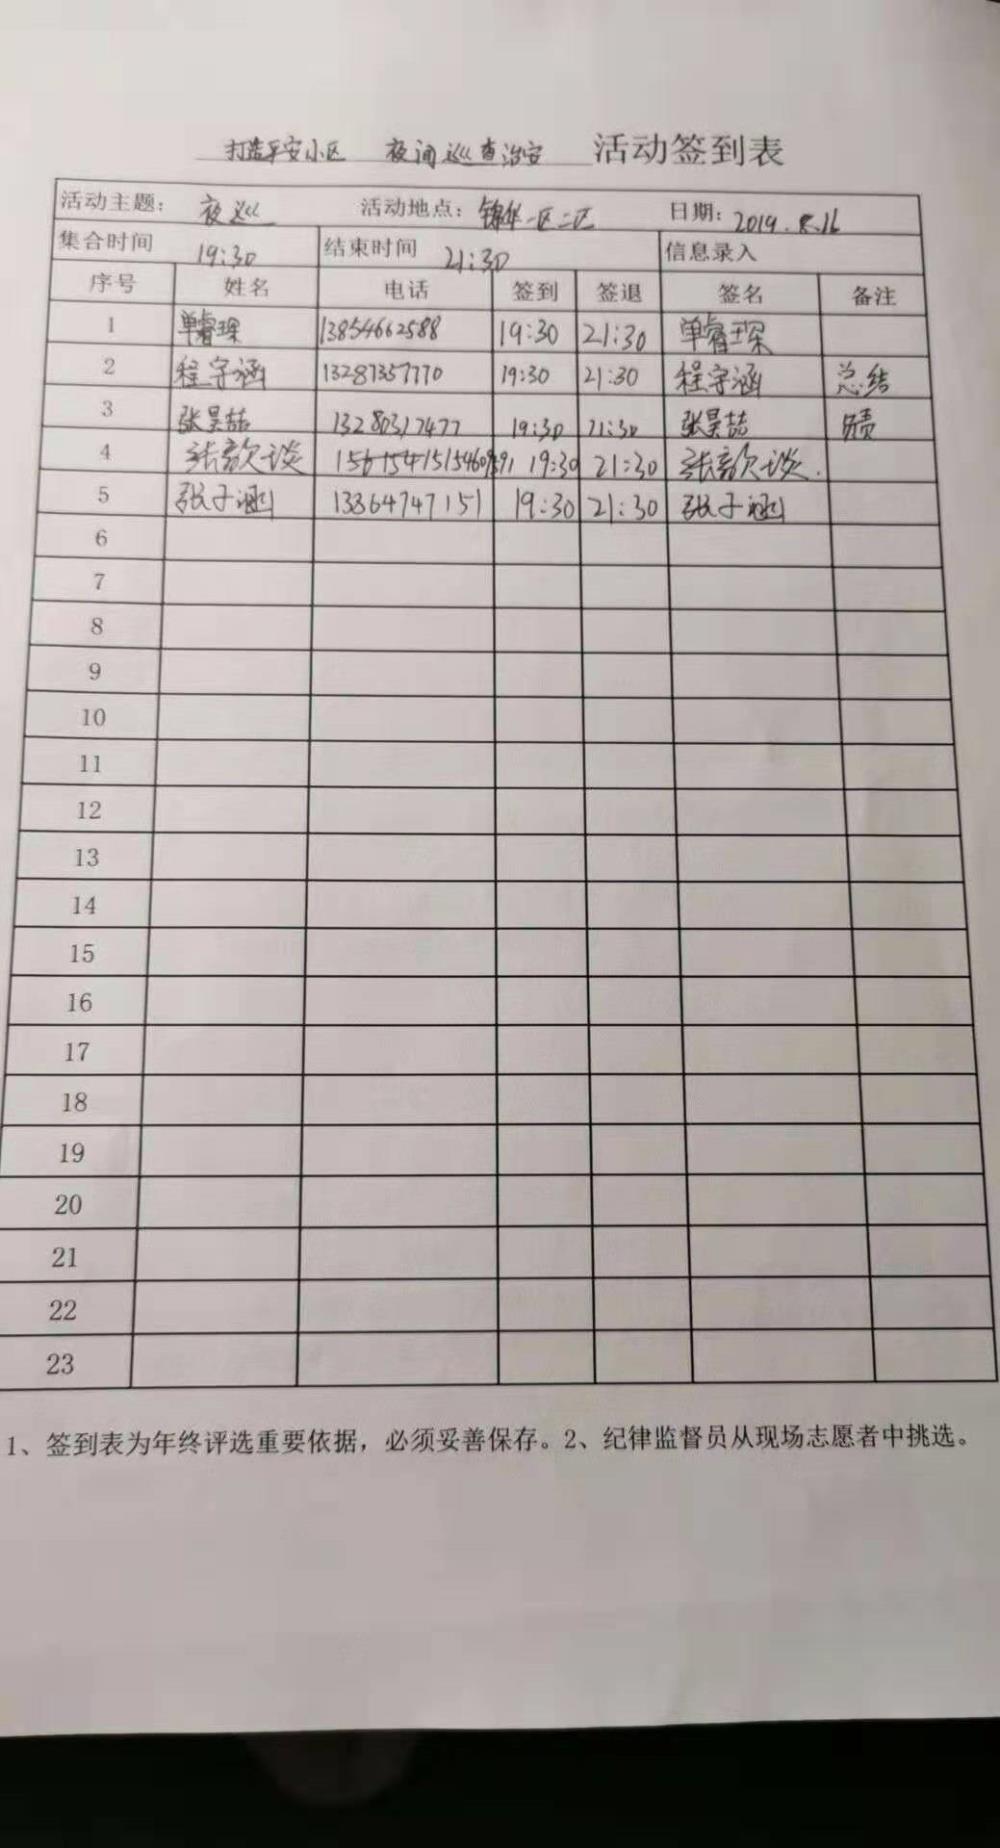 打造平安小区 夜间巡查治安 活动签到表
活动主题： 夜巡 活动地点：锦华一区二区 日期：2019.8.16
集合时间 19:30 结束时间 21:30 信息录入
序号 姓名 电话 签到 签退 签名 备注
1 单睿琛 13854662588 19:30 21:30 单睿琛
2 程宇涵 13287357770 19:30 21:30 程宇涵 总结
3 张昊喆 13280317477 19:30 21:30 张昊喆
4 张歆谈 19:30 21:30 张歆谈.
5 张子涵 13364747151 19:30 21:30 张子涵
6
7
8
9
10
11
12
13
14
15
16
17
18
19
20
21
22
23
1、签到表为年终评选重要依据，必须妥善保存。2、纪律监督员从现场志愿者中挑选。